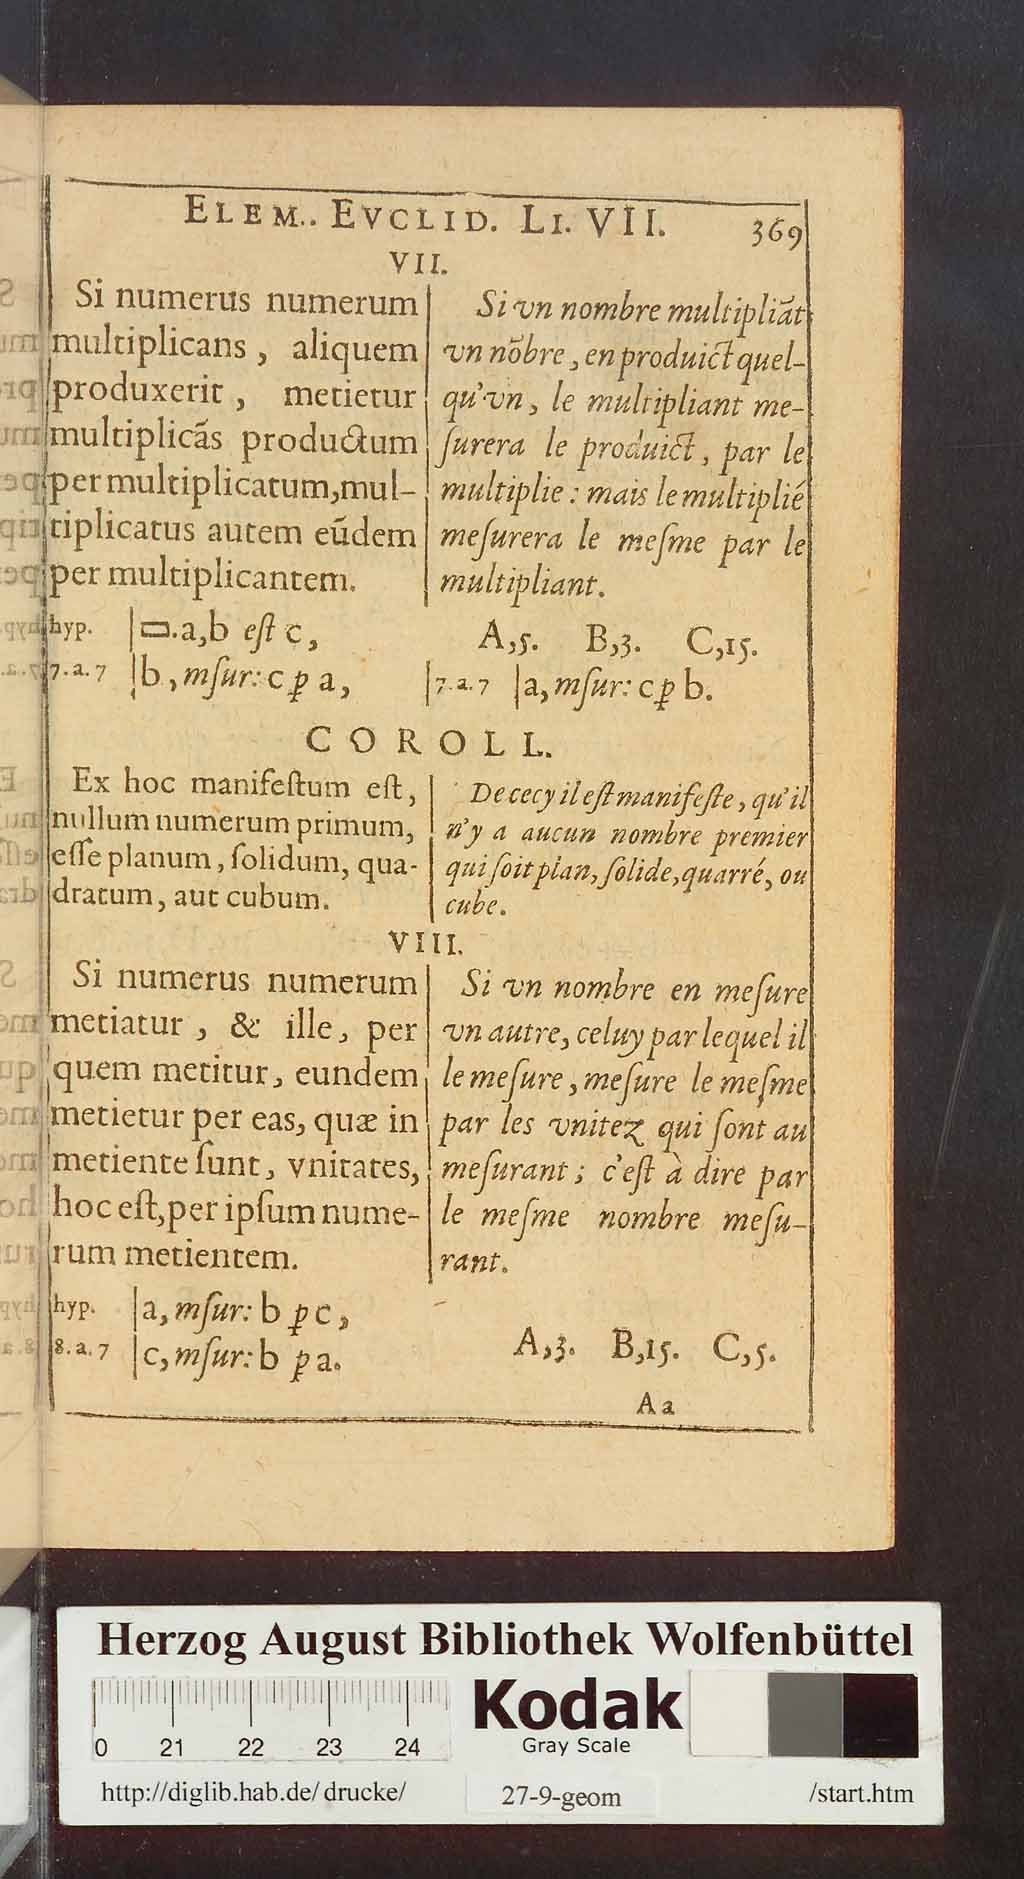 ELEM.. EVCLID. LI. VII. 369
VII.
Si numerus numerum
multiplicans, aliquem
produxerit, metietur
multiplicãs productum
per multiplicatum, mul-
tiplicatus autem eũdem
per multiplicantem.
Si vn nombre multipliãt
vn nõbre, en produict quel-
qu'vn, le multipliant me-
ſurera le produict, par le
multiplie: mais le multiplié
meſurera le meſme par le
multipliant.
hyp. | ▭.a,b eſt c,
A,5. B,3. C,15.
7.a.7 | b, mſur: c ꝑ a,
7.a.7 | a, mſur: c ꝑ b.
COROLL.
Ex hoc manifeſtum eſt,
nullum numerum primum,
eſſe planum, ſolidum, qua-
dratum, aut cubum.
De cecy il eſt manifeſte, qu'il
n'y a aucun nombre premier
qui ſoit plan, ſolide, quarré, ou
cube.
VIII.
Si numerus numerum
metiatur, & ille, per
quem metitur, eundem
metietur per eas, quæ in
metiente ſunt, vnitates,
hoc eſt, per ipſum nume-
rum metientem.
Si vn nombre en meſure
vn autre, celuy par lequel il
le meſure, meſure le meſme
par les vnitez qui ſont au
meſurant; c'eſt à dire par
le meſme nombre meſu-
rant.
hyp. | a, mſur: b ꝑ c,
8.a.7 | c, mſur: b ꝑ a.
A,3. B,15. C,5.
Aa
Herzog August Bibliothek Wolfenbüttel
0 21 22 23 24
Kodak
Gray Scale
http://diglib.hab.de/ drucke/ 27-9-geom /start.htm